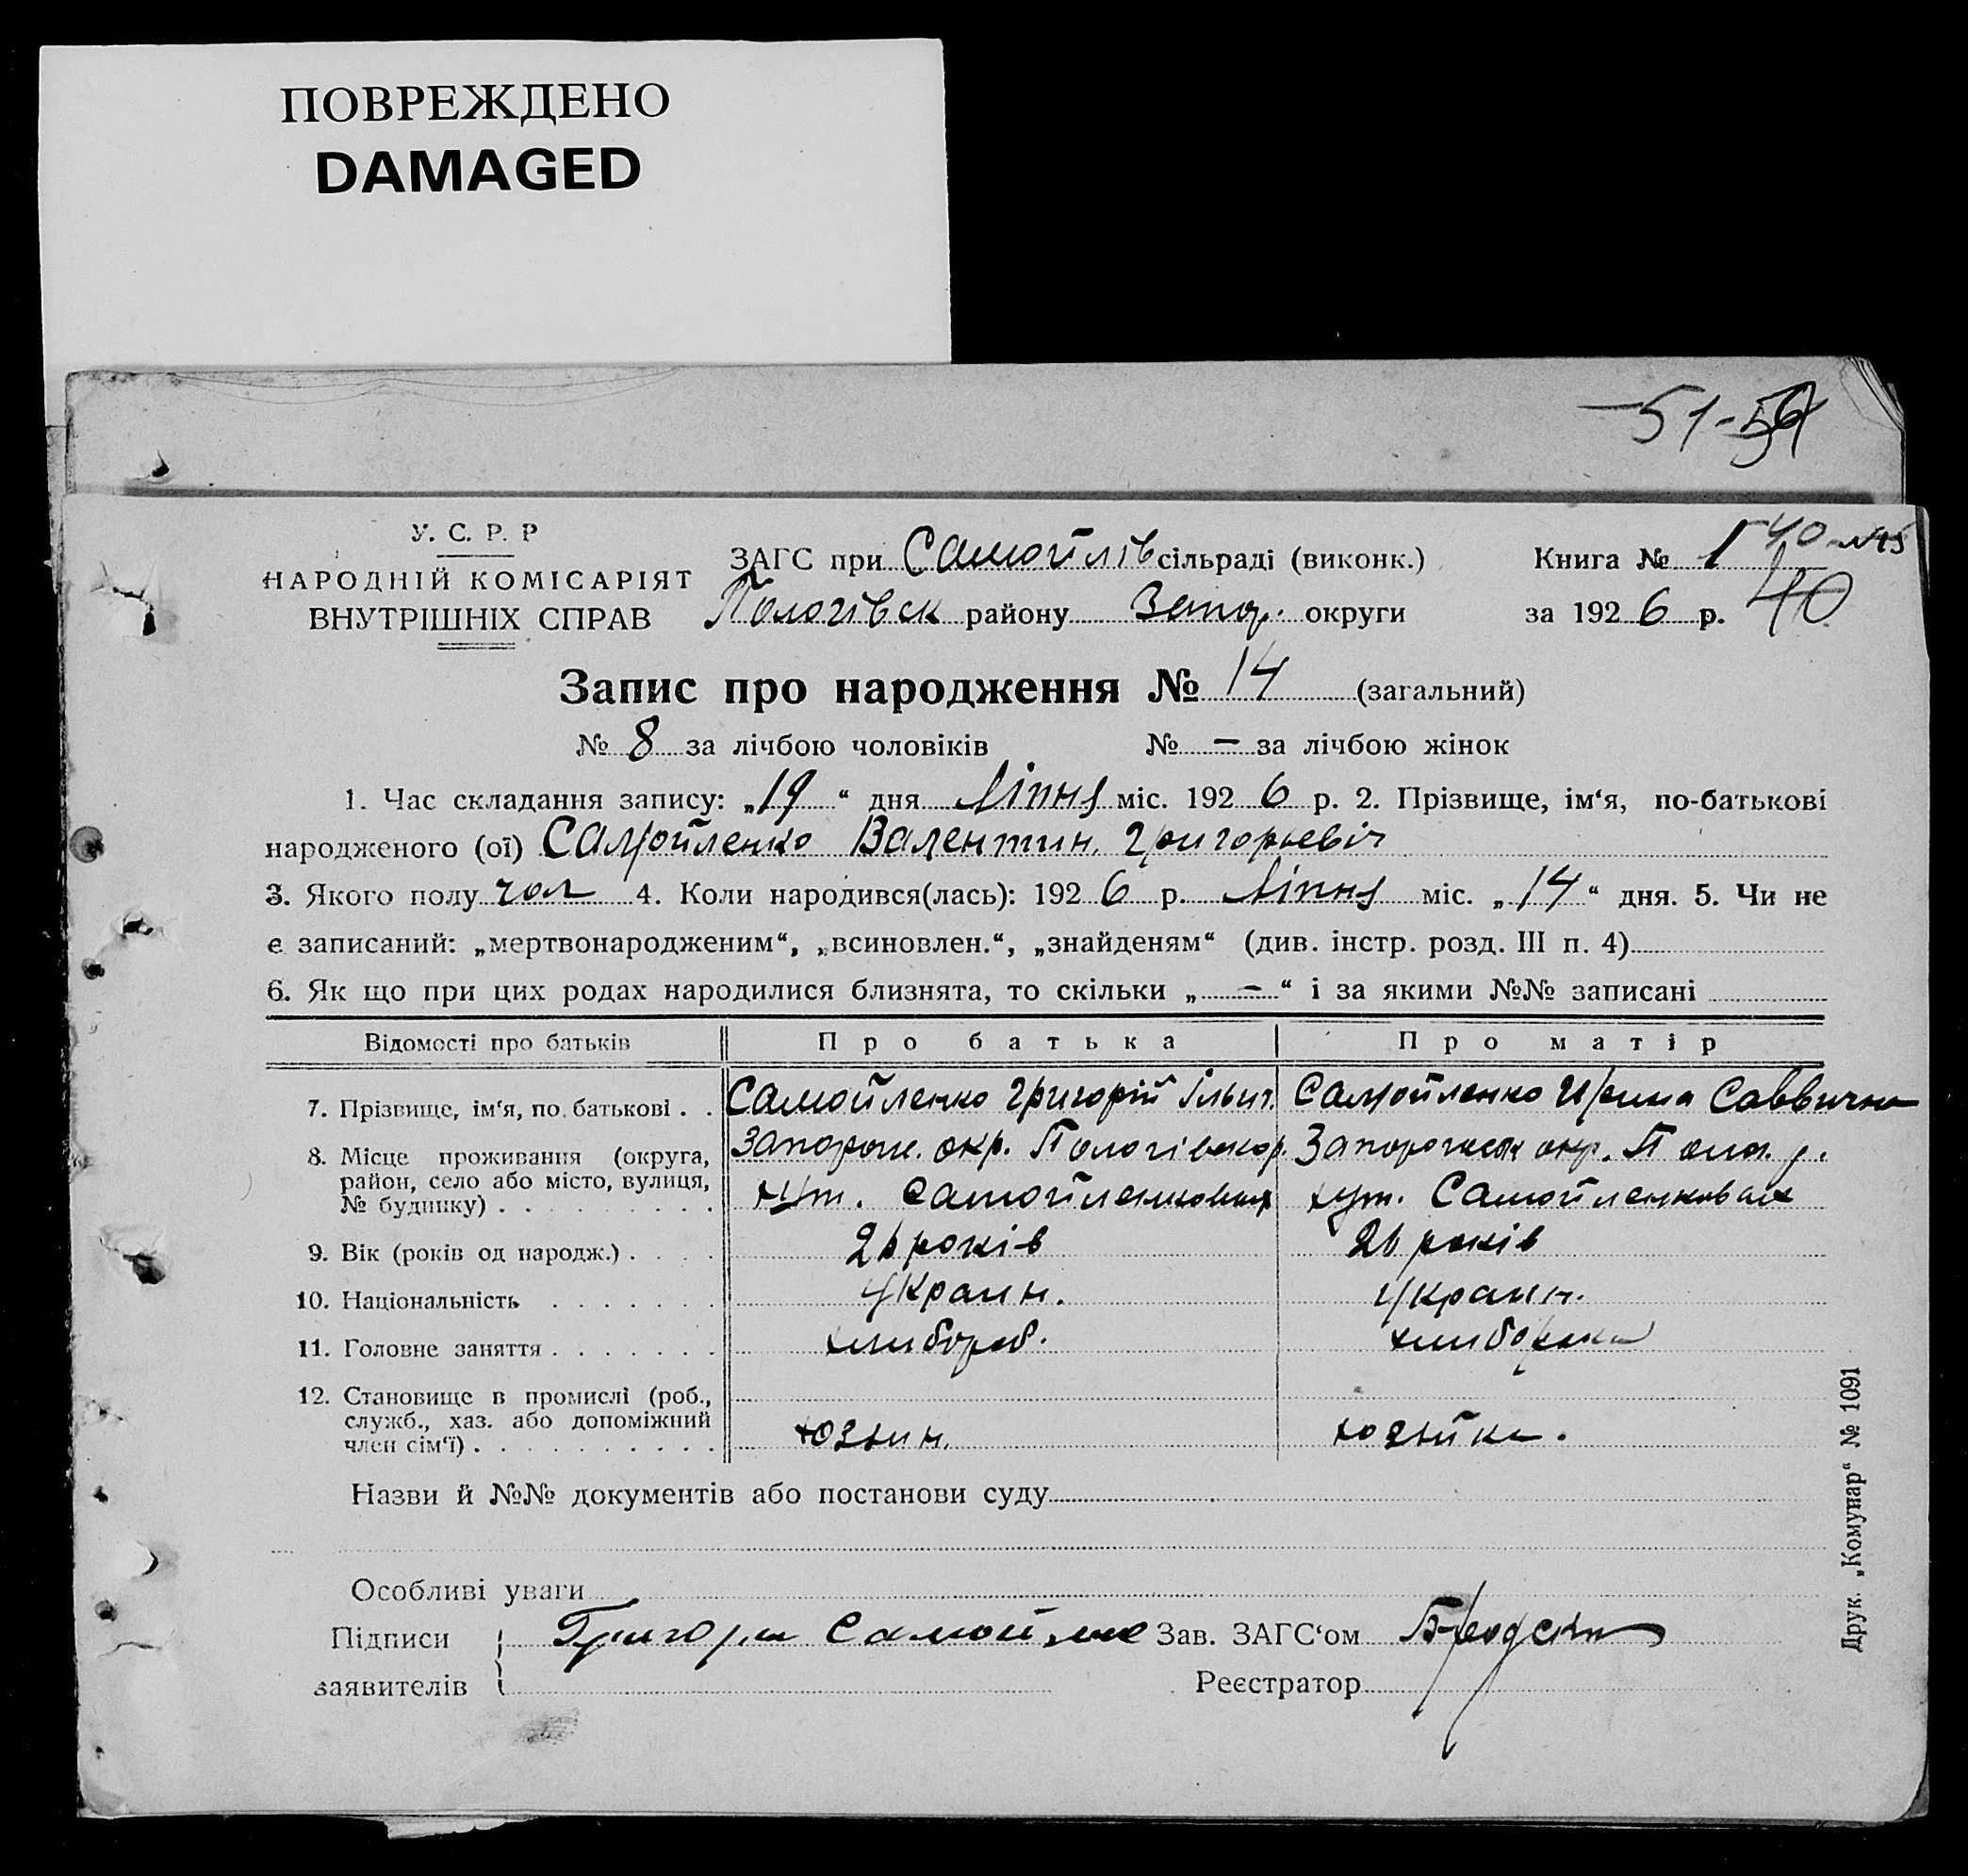 ПОВРЕЖДЕНО
DAMAGED
51-
У. С. Р. Р
НАРОДНІЙ КОМІСАРІЯТ
ВНУТРІШНІХ СПРАВ
ЗАГС при Самойлів сільраді (виконк.)
Пологівськ району Запор. округи
Книга № 1
за 1926 р. 40
Запис про народження № 14 (загальний)
№ 8 за лічбою чоловіків № — за лічбою жінок
1. Час складання запису: „19“ дня Ліпня міс. 1926 р. 2. Прізвище, ім‘я, по-батькові
народженого (ої) Самойленко Валентин Григорьевіч
3. Якого полу чол 4. Коли народився(лась): 1926 р. Ліпня міс. „14“ дня. 5. Чи не
є записаний: „мертвонародженим“, „всиновлен.“, „знайденям“ (див. інстр. розд. III п. 4)
6. Як що при цих родах народилися близнята, то скільки „—“ і за якими №№ записані
Відомості про батьків Про батька Про матір
7. Прізвище, ім‘я, по батькові . . Самойленко Григорій Ільич. Самойленко Ирина Саввична
8. Місце проживання (округа, район, село або місто, вулиця, № будинку) . . . . . . . . .
Запорож. окр. Пологівск р. Запорожск окр. Полог. р.
хут. Самойленковых хут. Самойленковах
9. Вік (років од народж.) . . . . 26 років 26 років
10. Національність . . . . . . . Украин. Украин.
11. Головне заняття . . . . . . . хлибороб. хлиборобка
12. Становище в промислі (роб., служб., хаз. або допоміжний член сім‘ї) . . . . . . . . . .
хозяин. хозяйка.
Назви й №№ документів або постанови суду
Особливі уваги
Підписи заявителів Григори Самойленко Зав. ЗАГС‘ом
Реєстратор
Друк. „Комунар“ № 1091